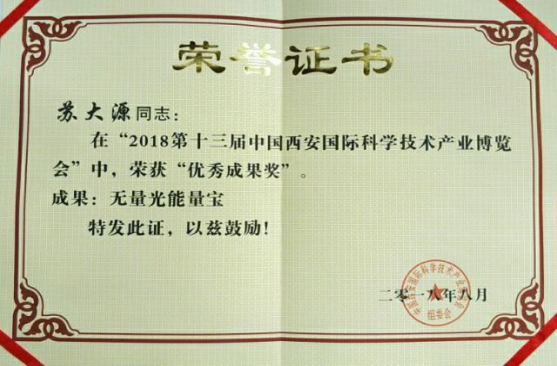 荣誉证书
苏大源同志：
在“2018第十三届中国西安国际科学技术产业博览
会”中，荣获“优秀成果奖”。
成果：无量光能量宝
特发此证，以兹鼓励！
二零一八年八月
组委会